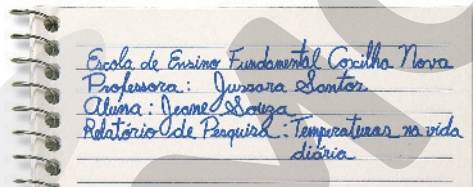 Escola de Ensino Fundamental Coxilha Nova
Professora: Jussara Santos
Aluna: Jeane Souza
Relatório de Pesquisa: Temperaturas na vida
diária